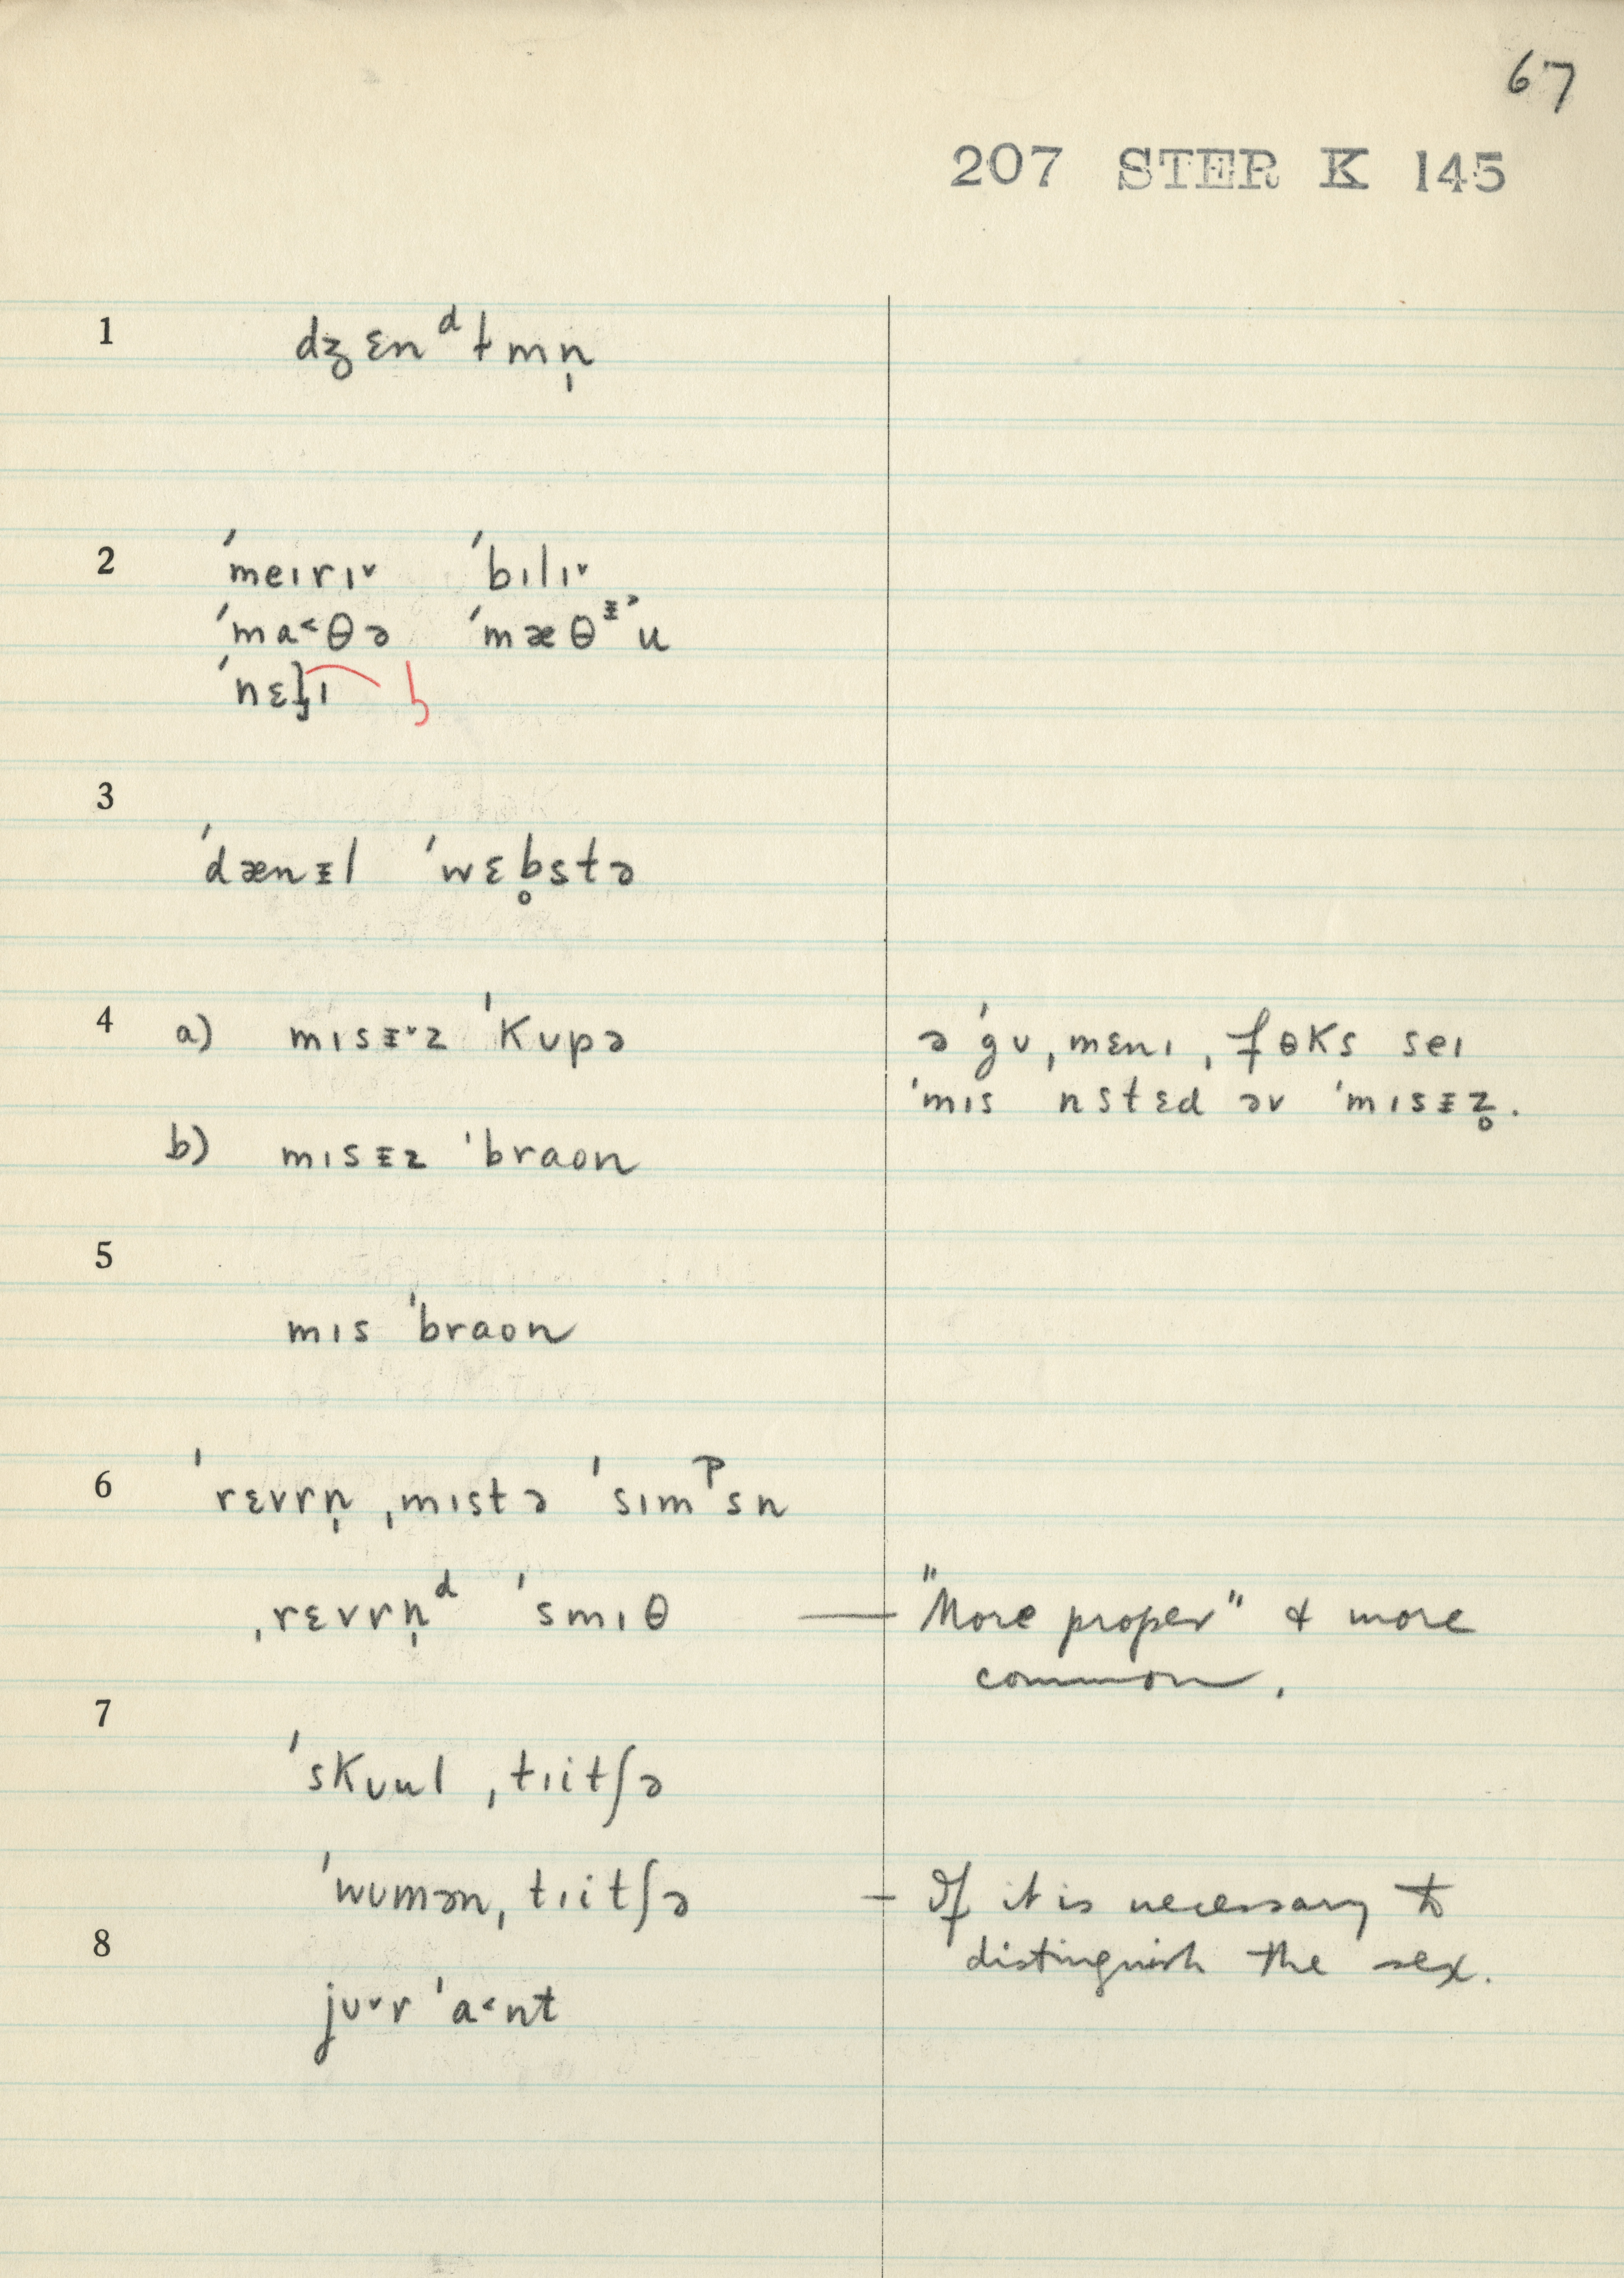 67
207 STER K 145
1 dʒɛnᵈɫmn̩
2 ˈmeɪrɪ˅ ˈbɪlɪ˅
ˈma˂θə ˈmæθᵻ˃u
ˈnɛɫ̡ɪ b
3
ˈdænᵻl ˈwɛb̥stə
4 a) mɪsᵻ˅z ˈkʊpə ə ˈgʊˌmɛnɪˌfɵks seɪ
ˈmɪs nstɛd əv ˈmɪsᵻz̥.
b) mɪsᵻz ˈbraon
5
mɪs ˈbraon
6 ˈrɛvrn̩ ˌmɪstə ˈsɪmᵖsn
ˌrɛvrn̩ᵈ ˈsmɪθ — "More proper" & more
common.
7
ˈskʊul ˌtɪitʃə
ˈwʊmən ˌtɪitʃə — If it is necessary to
8 distinguish the sex.
jʊ˅r ˈa˂nt